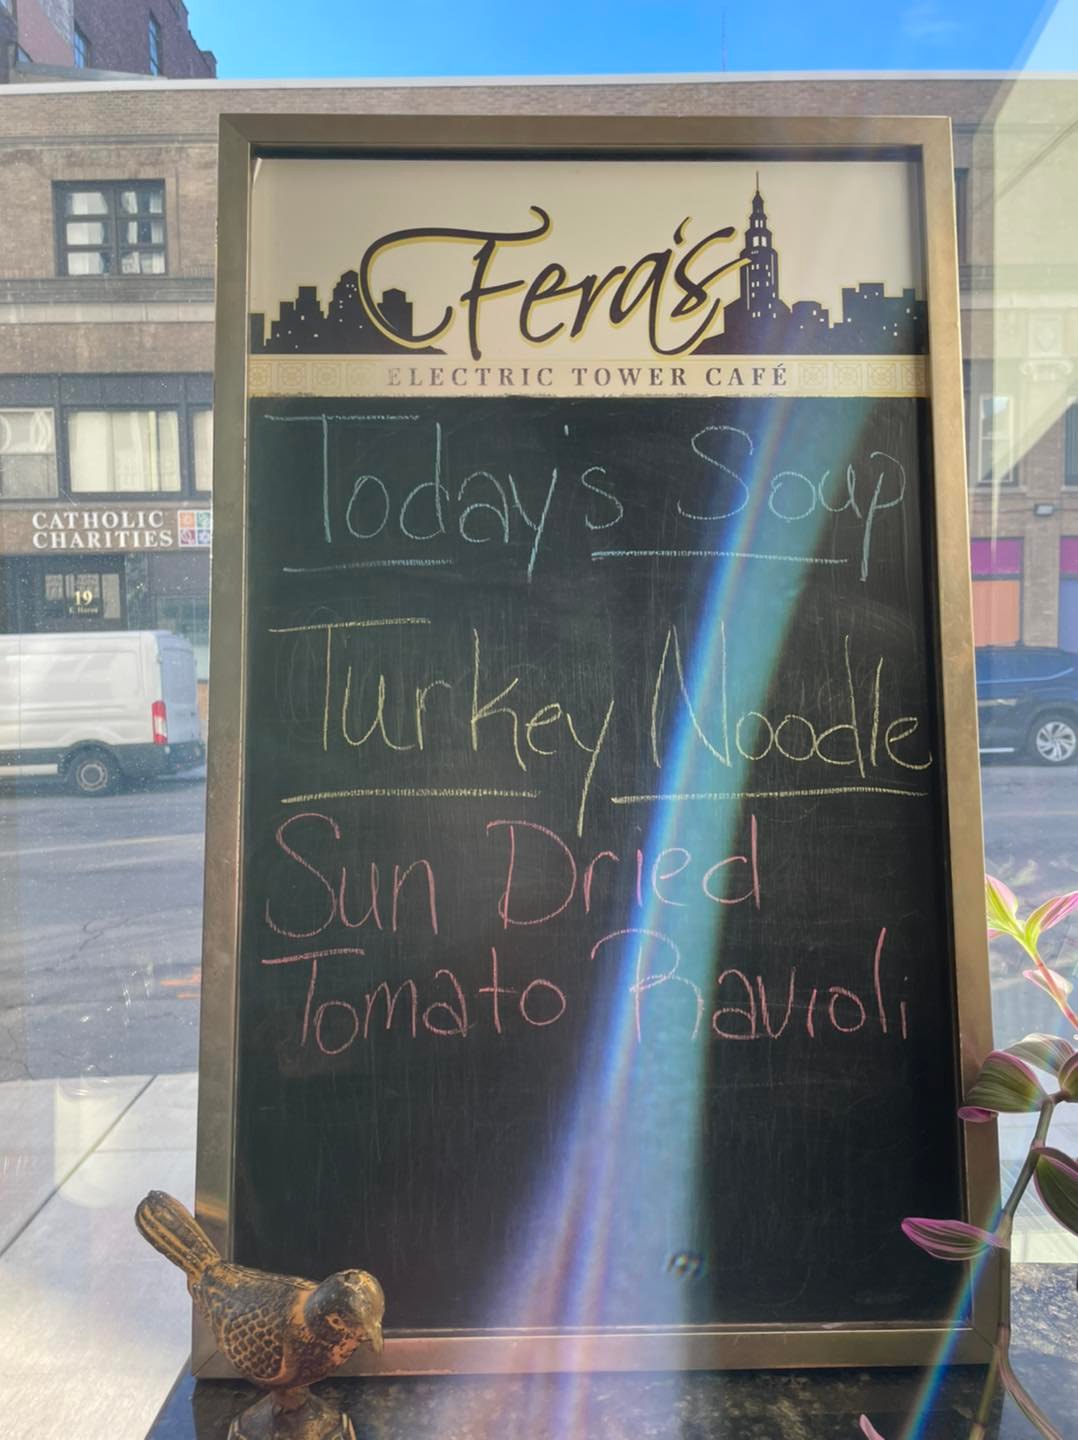 Fera's
ELECTRIC TOWER CAFÉ
Today's Soup
Turkey Noodle
Sun Dried
Tomato Ravioli
CATHOLIC
CHARITIES
19
E. Huron